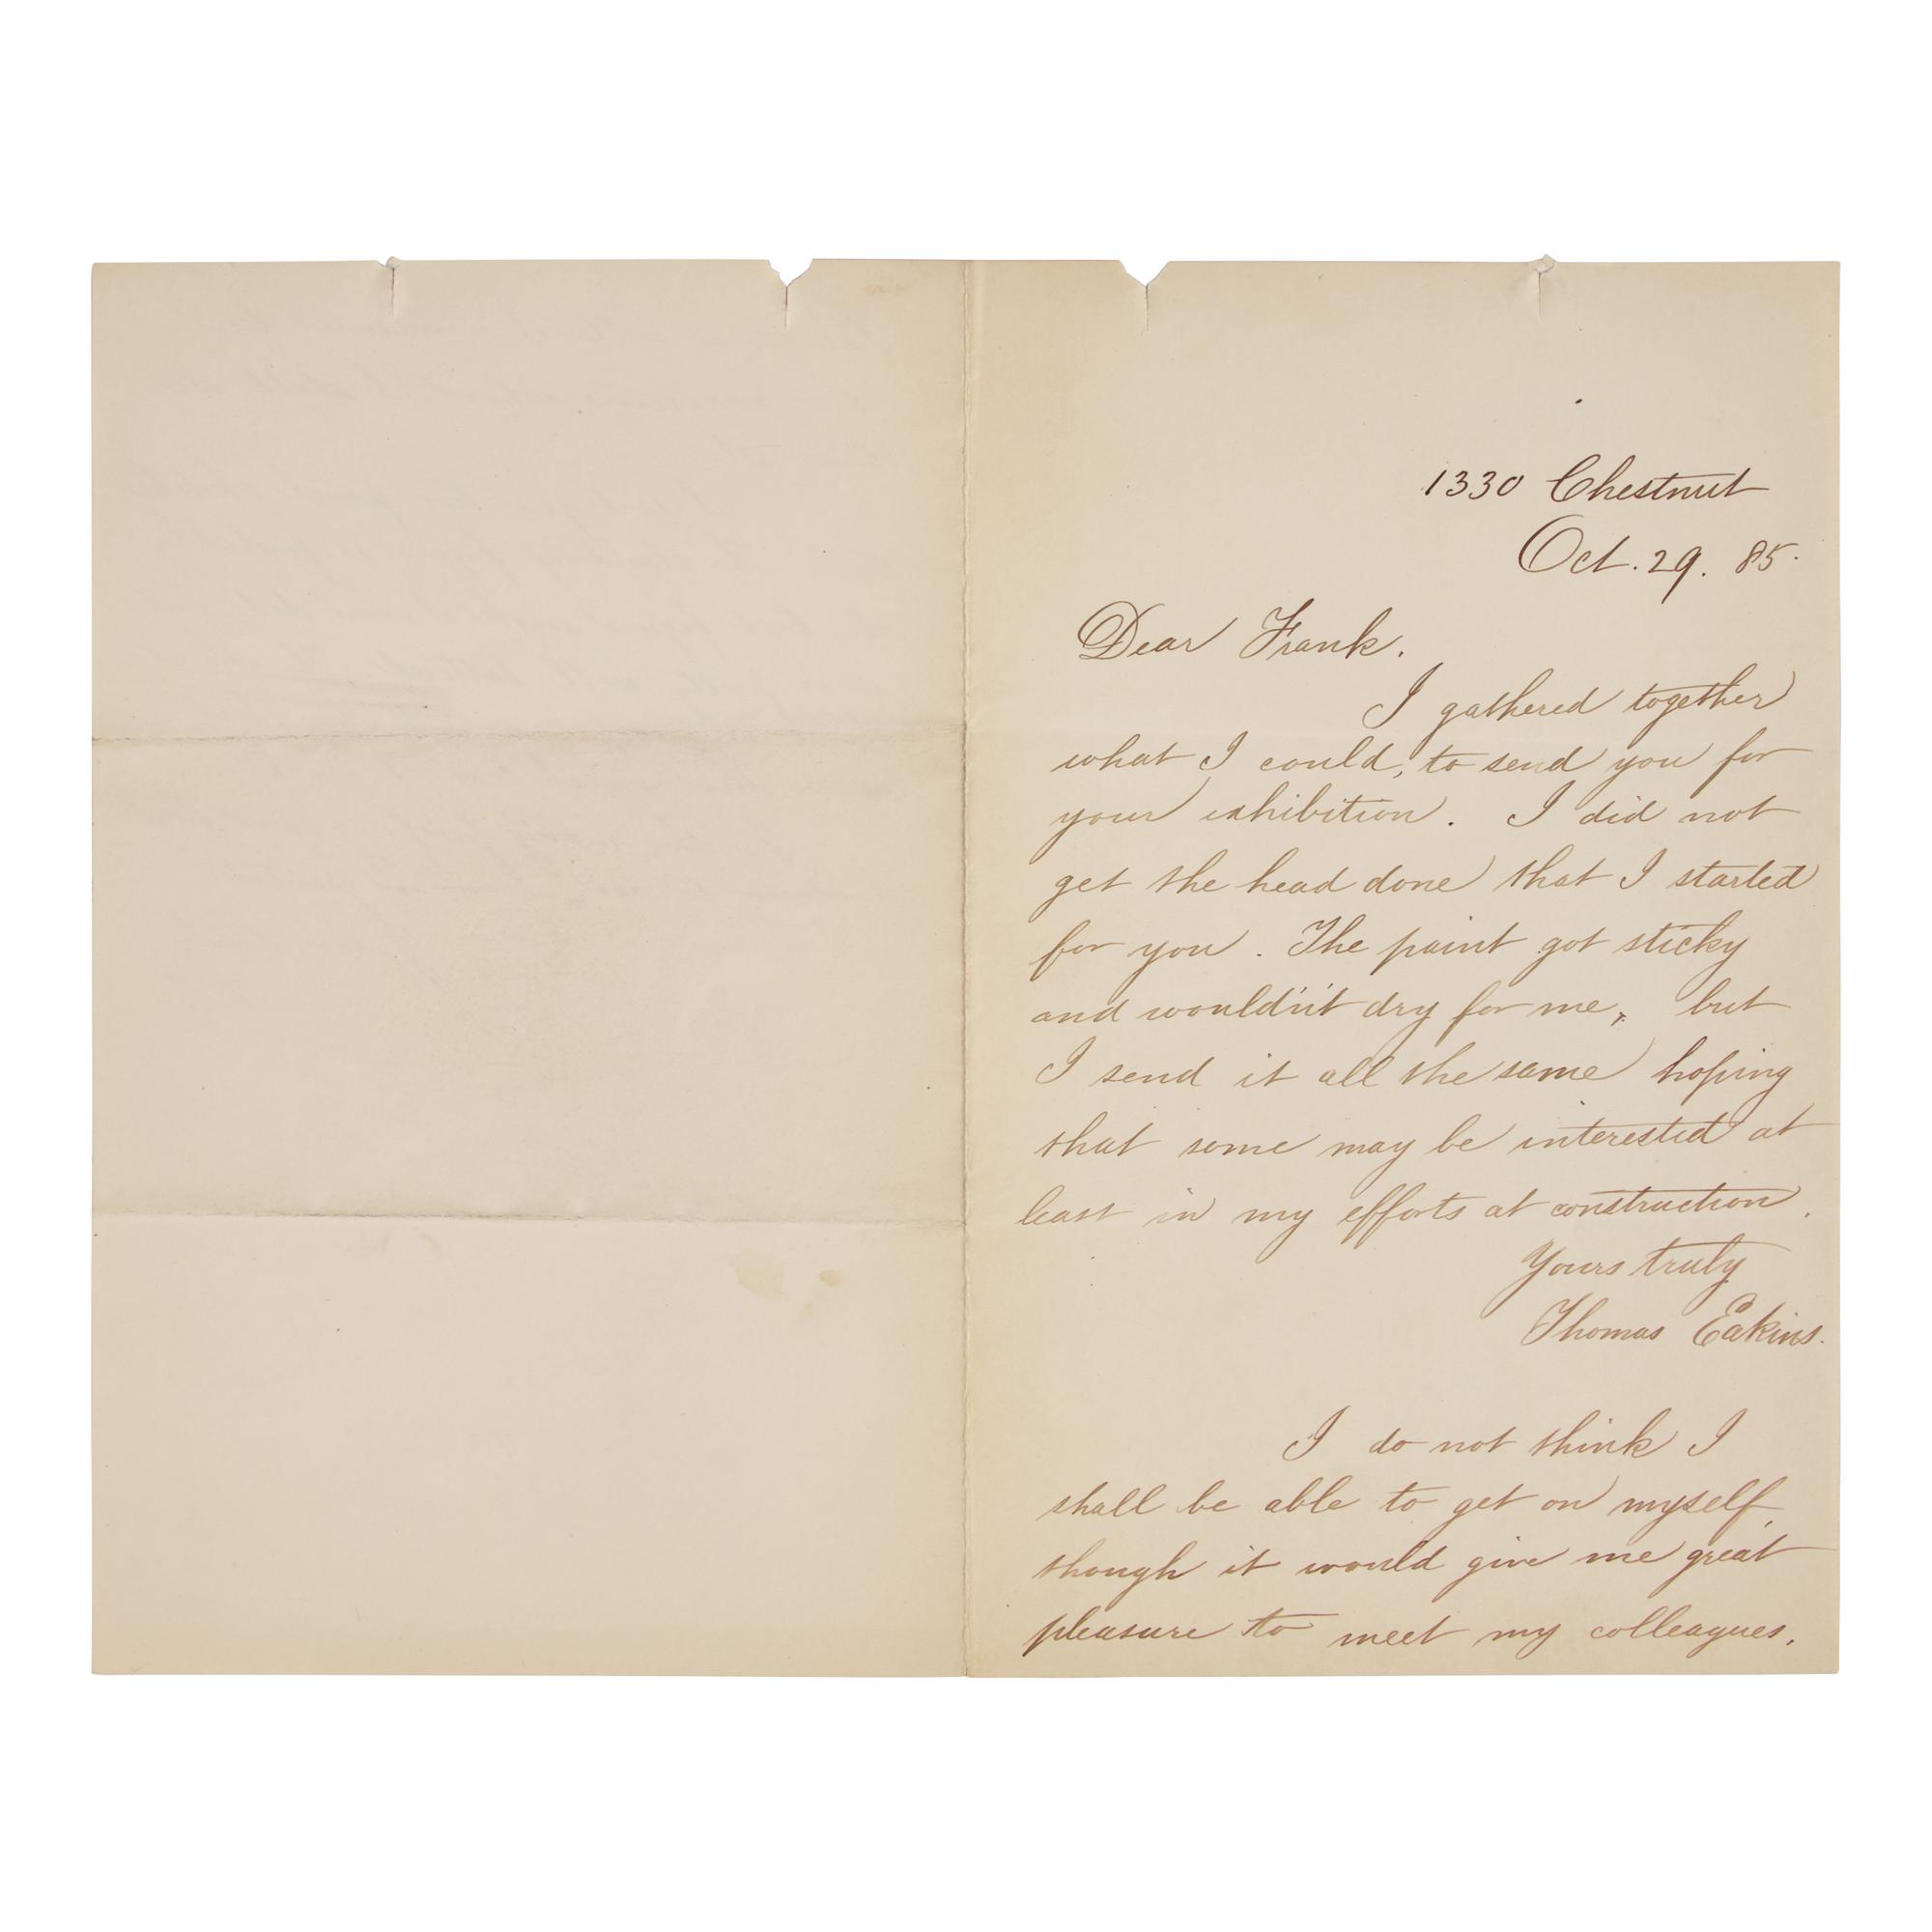 1330 Chestnut
Oct. 29. 85.
Dear Frank.
I gathered together
what I could, to send you for
your exhibition. I did not
get the head done that I started
for you. The paint got sticky
and wouldn't dry for me, but
I send it all the same hoping
that some may be interested at
least in my efforts at construction.
Yours truly
Thomas Eakins.
I do not think I
shall be able to get on myself,
though it would give me great
pleasure to meet my colleagues.